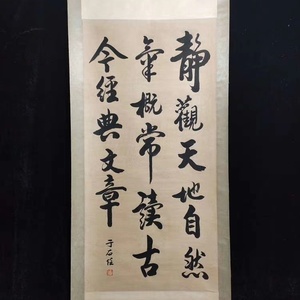 静觀天地自然
氣概常讀古
今經典文章
于右任